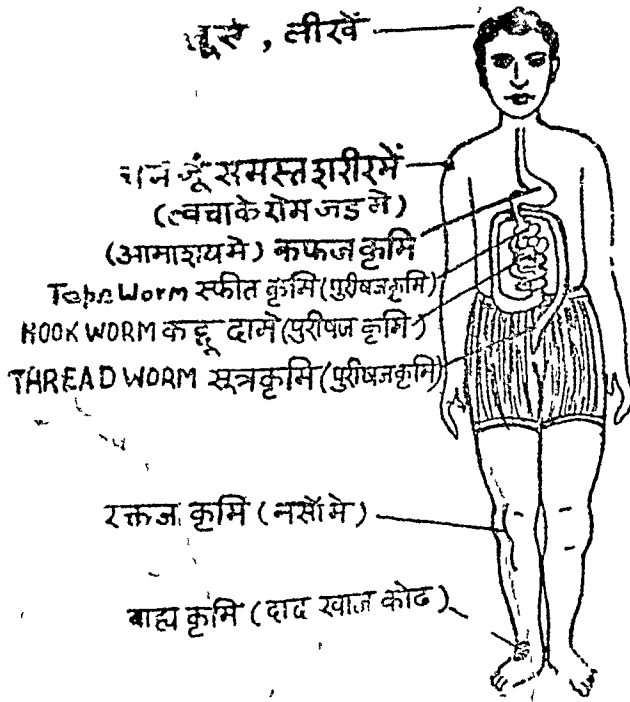 , लीखें
जूँ समस्त शरीर में
(त्वचा के रोम जड मे)
(आमाशय मे) कफज कृमि
Tape Worm स्फीत कृमि (पुरीषज कृमि)
HOOK WORM कद्दू दामे (पुरीषज कृमि)
THREAD WORM सूत्रकृमि (पुरीषजकृमि)
रक्तज कृमि (नसों मे)
बाह्य कृमि (दाद खाज कोढ)